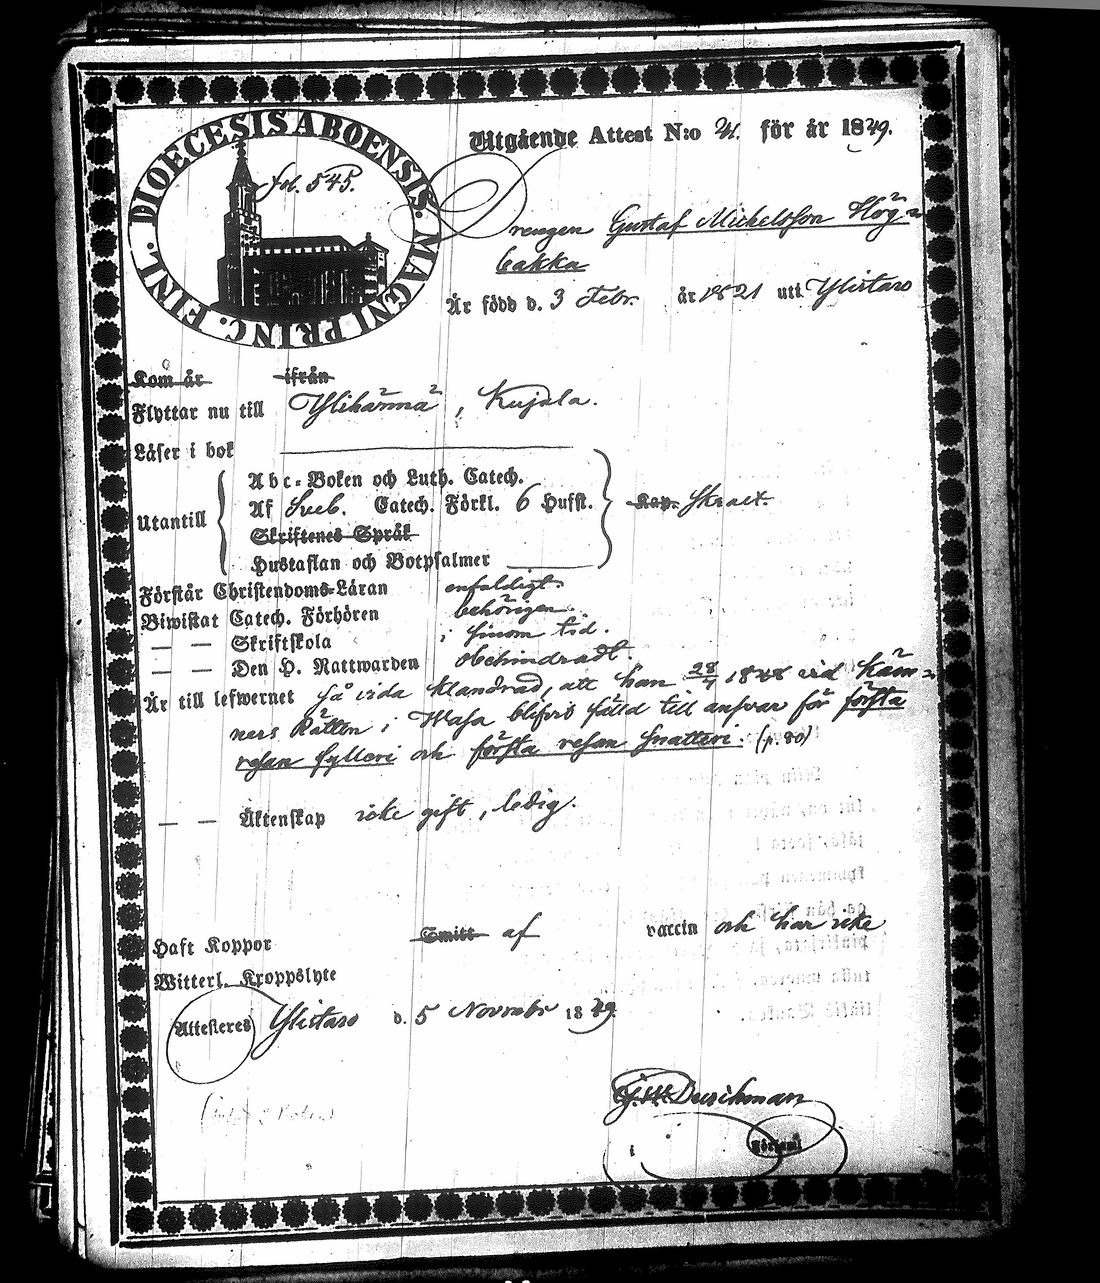 DIOECESIS ABOENSIS. MAGNI PRINC. FINL.
fol. 545.
Utgående Attest N:o 21. för år 1849.
Drengen Gustaf Mickelsson Hög-
bakka
Är född d. 3 Febr. år 1821 uti Ylistaro
Kom år ifrån
Flyttar nu till Ylihärmä, Kujala.
Läser i bok
Utantill
Abc-Boken och Luth. Catech.
Af Sveb. Catech. Förkl. 6 Hufst.
Kap. Skralt.
Skriftenes Språk
Hustaflan och Botpsalmer
Förstår Christendoms-Läran enfaldigt.
Biwistat Catech. Förhören behörigen.
— — Skriftskola i sinom tid.
— — Den H. Nattwarden obehindradt.
Är till lefwernet så vida klandrad, att han 28/4 1848 vid Käm-
ners Rätten i Wasa blifvit fälld till ansvar för första
resan fylleri och första resan snatteri. (p. 80)
— — Äktenskap icke gift, ledig.
Haft Koppor Smitt af vaccin och har icke
Witterl. Kroppslyte
Attesteres Ylistaro d. 5 Novembr 1849.
Durchman
i